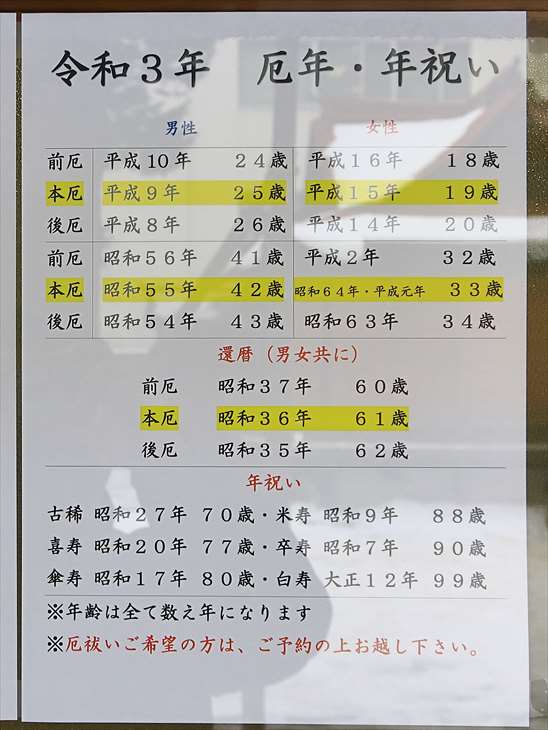 令和３年　厄年・年祝い
男性　女性
前厄 平成10年 ２４歳 平成１６年 １８歳
本厄 平成９年 ２５歳 平成１５年 １９歳
後厄 平成８年 ２６歳 平成１４年 ２０歳
前厄 昭和５６年 ４１歳 平成２年 ３２歳
本厄 昭和５５年 ４２歳 昭和６４年・平成元年 ３３歳
後厄 昭和５４年 ４３歳 昭和６３年 ３４歳
還暦（男女共に）
前厄 昭和３７年 ６０歳
本厄 昭和３６年 ６１歳
後厄 昭和３５年 ６２歳
年祝い
古稀 昭和２７年 ７０歳・米寿 昭和９年 ８８歳
喜寿 昭和２０年 ７７歳・卒寿 昭和７年 ９０歳
傘寿 昭和１７年 ８０歳・白寿 大正１２年 ９９歳
※年齢は全て数え年になります
※厄祓いご希望の方は、ご予約の上お越し下さい。